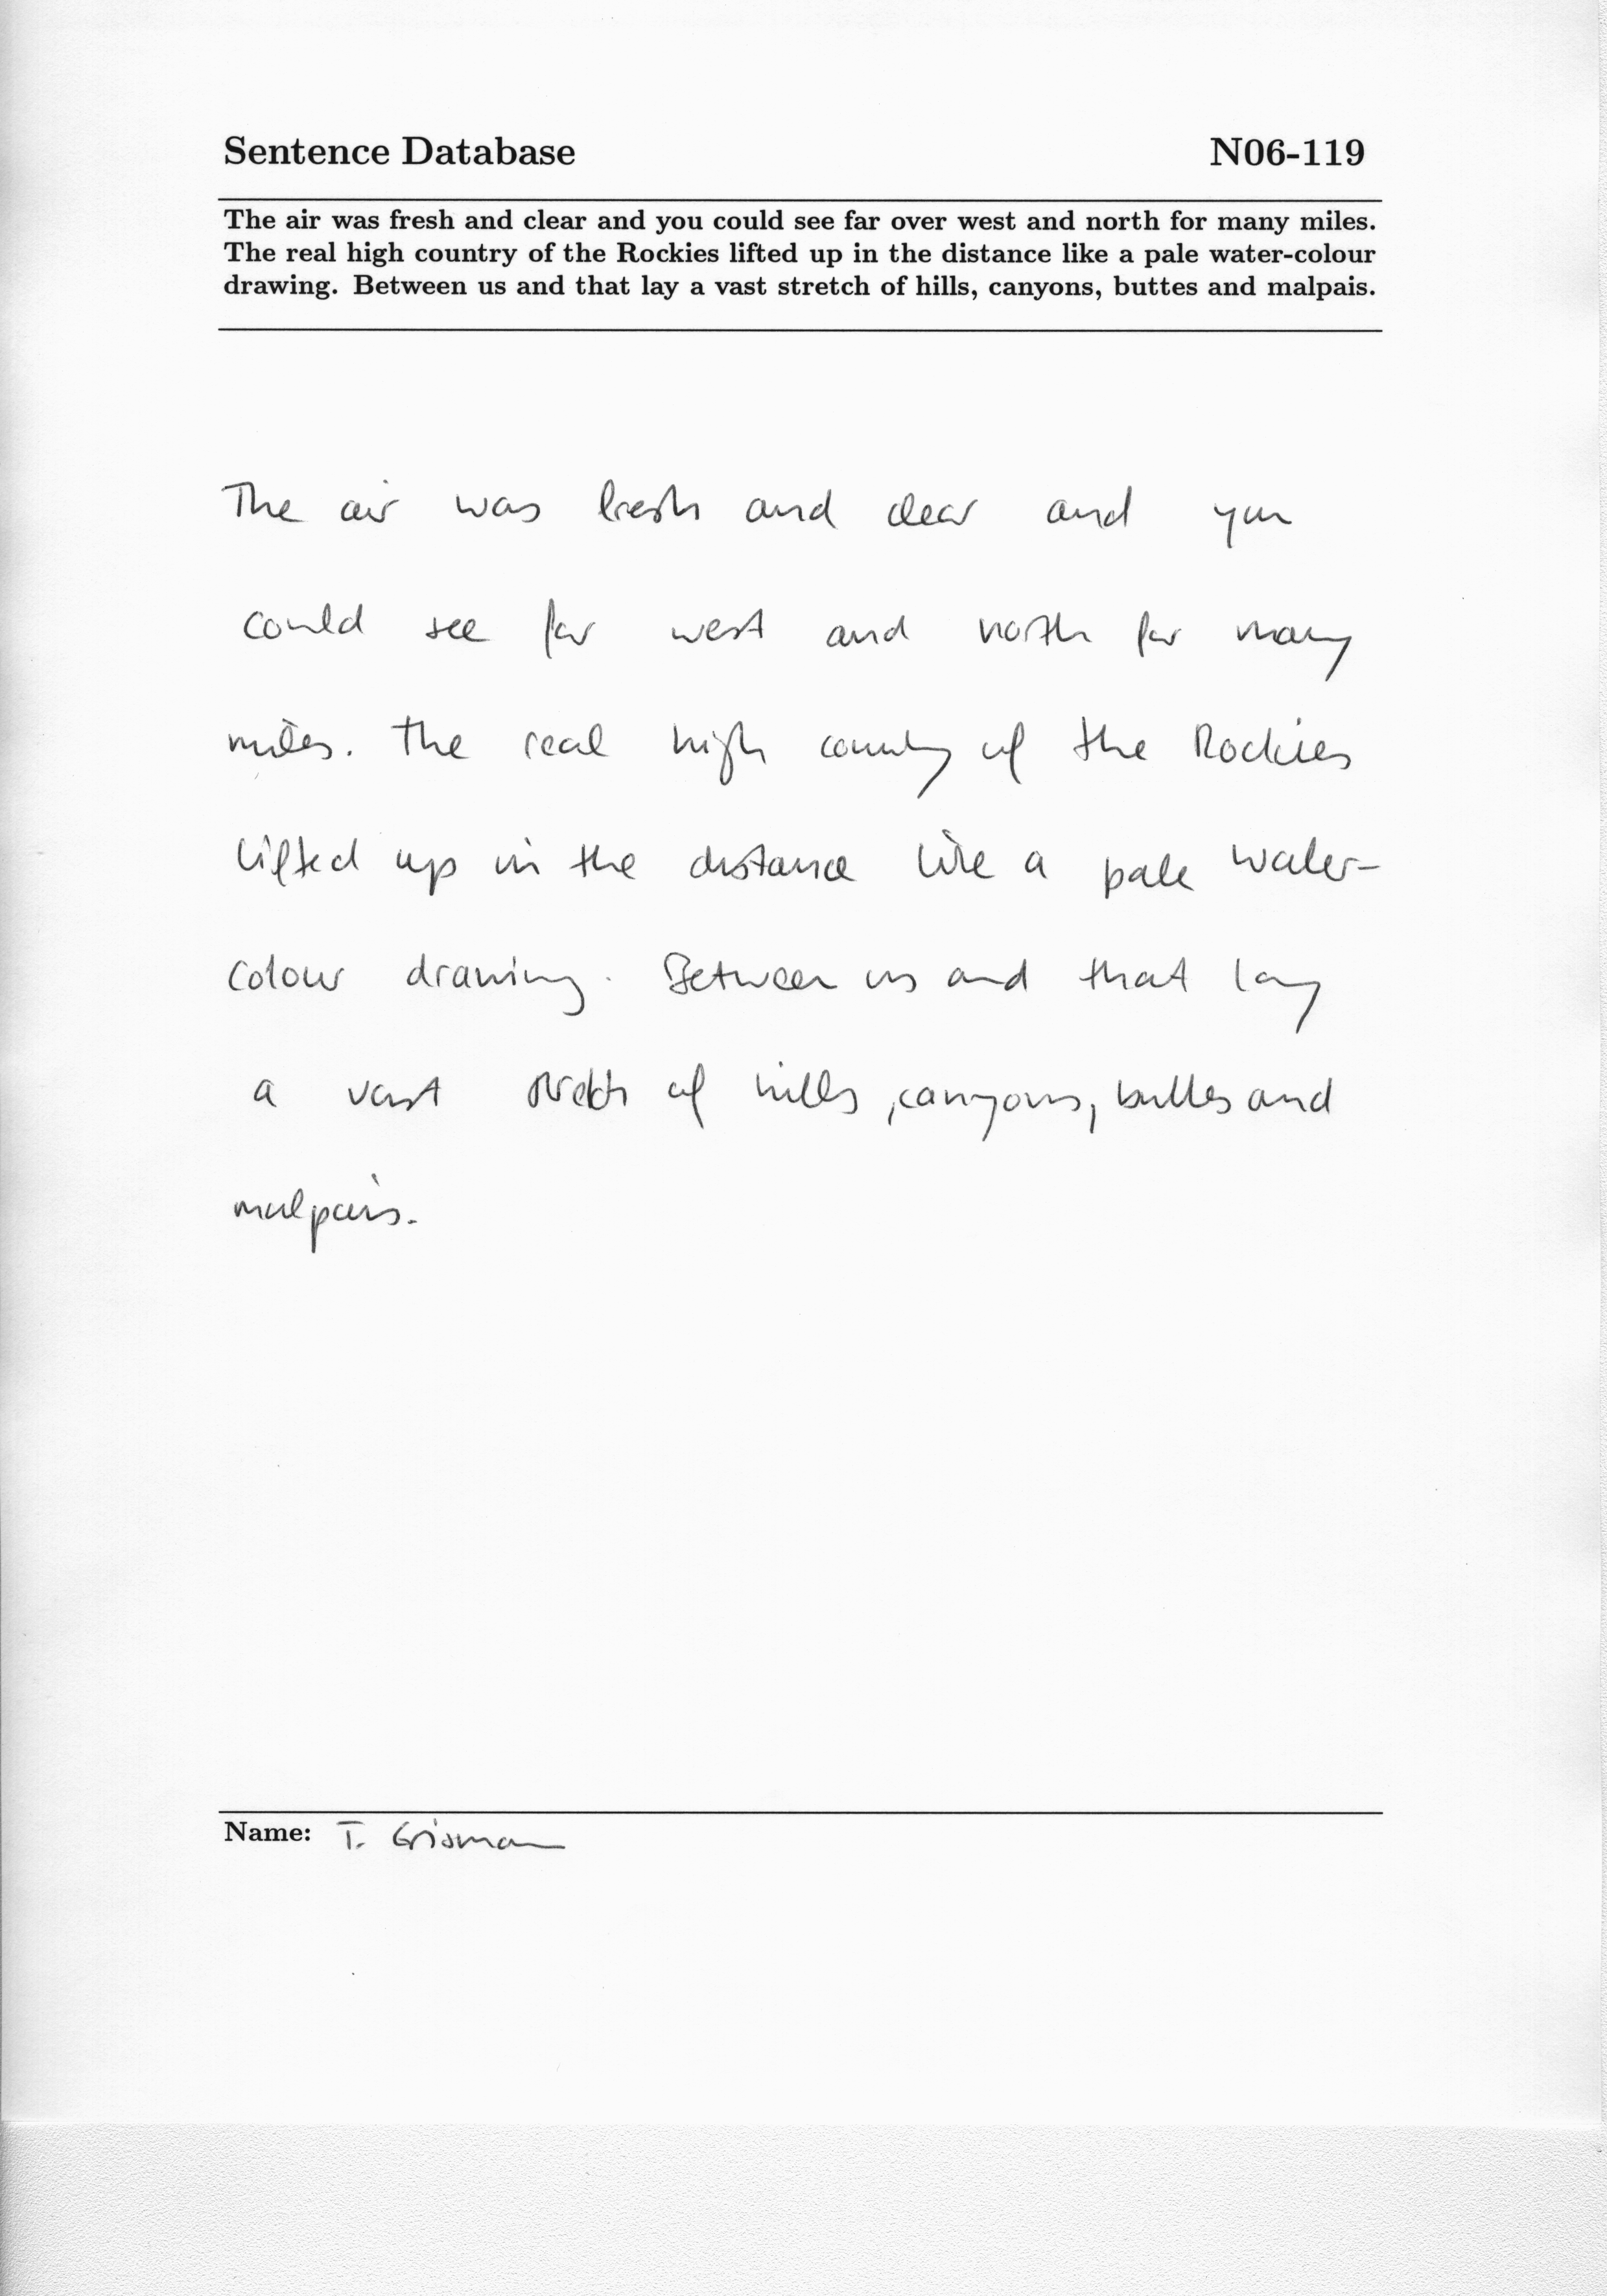 Sentence Database N06-119
The air was fresh and clear and you could see far over west and north for many miles.
The real high country of the Rockies lifted up in the distance like a pale water-colour
drawing. Between us and that lay a vast stretch of hills, canyons, buttes and malpais.
The air was fresh and clear and you
could see far west and north for many
miles. The real high country of the Rockies
lifted up in the distance like a pale water-
colour drawing. Between us and that lay
a vast stretch of hills, canyons, buttes and
malpais.
Name: T. Grisman